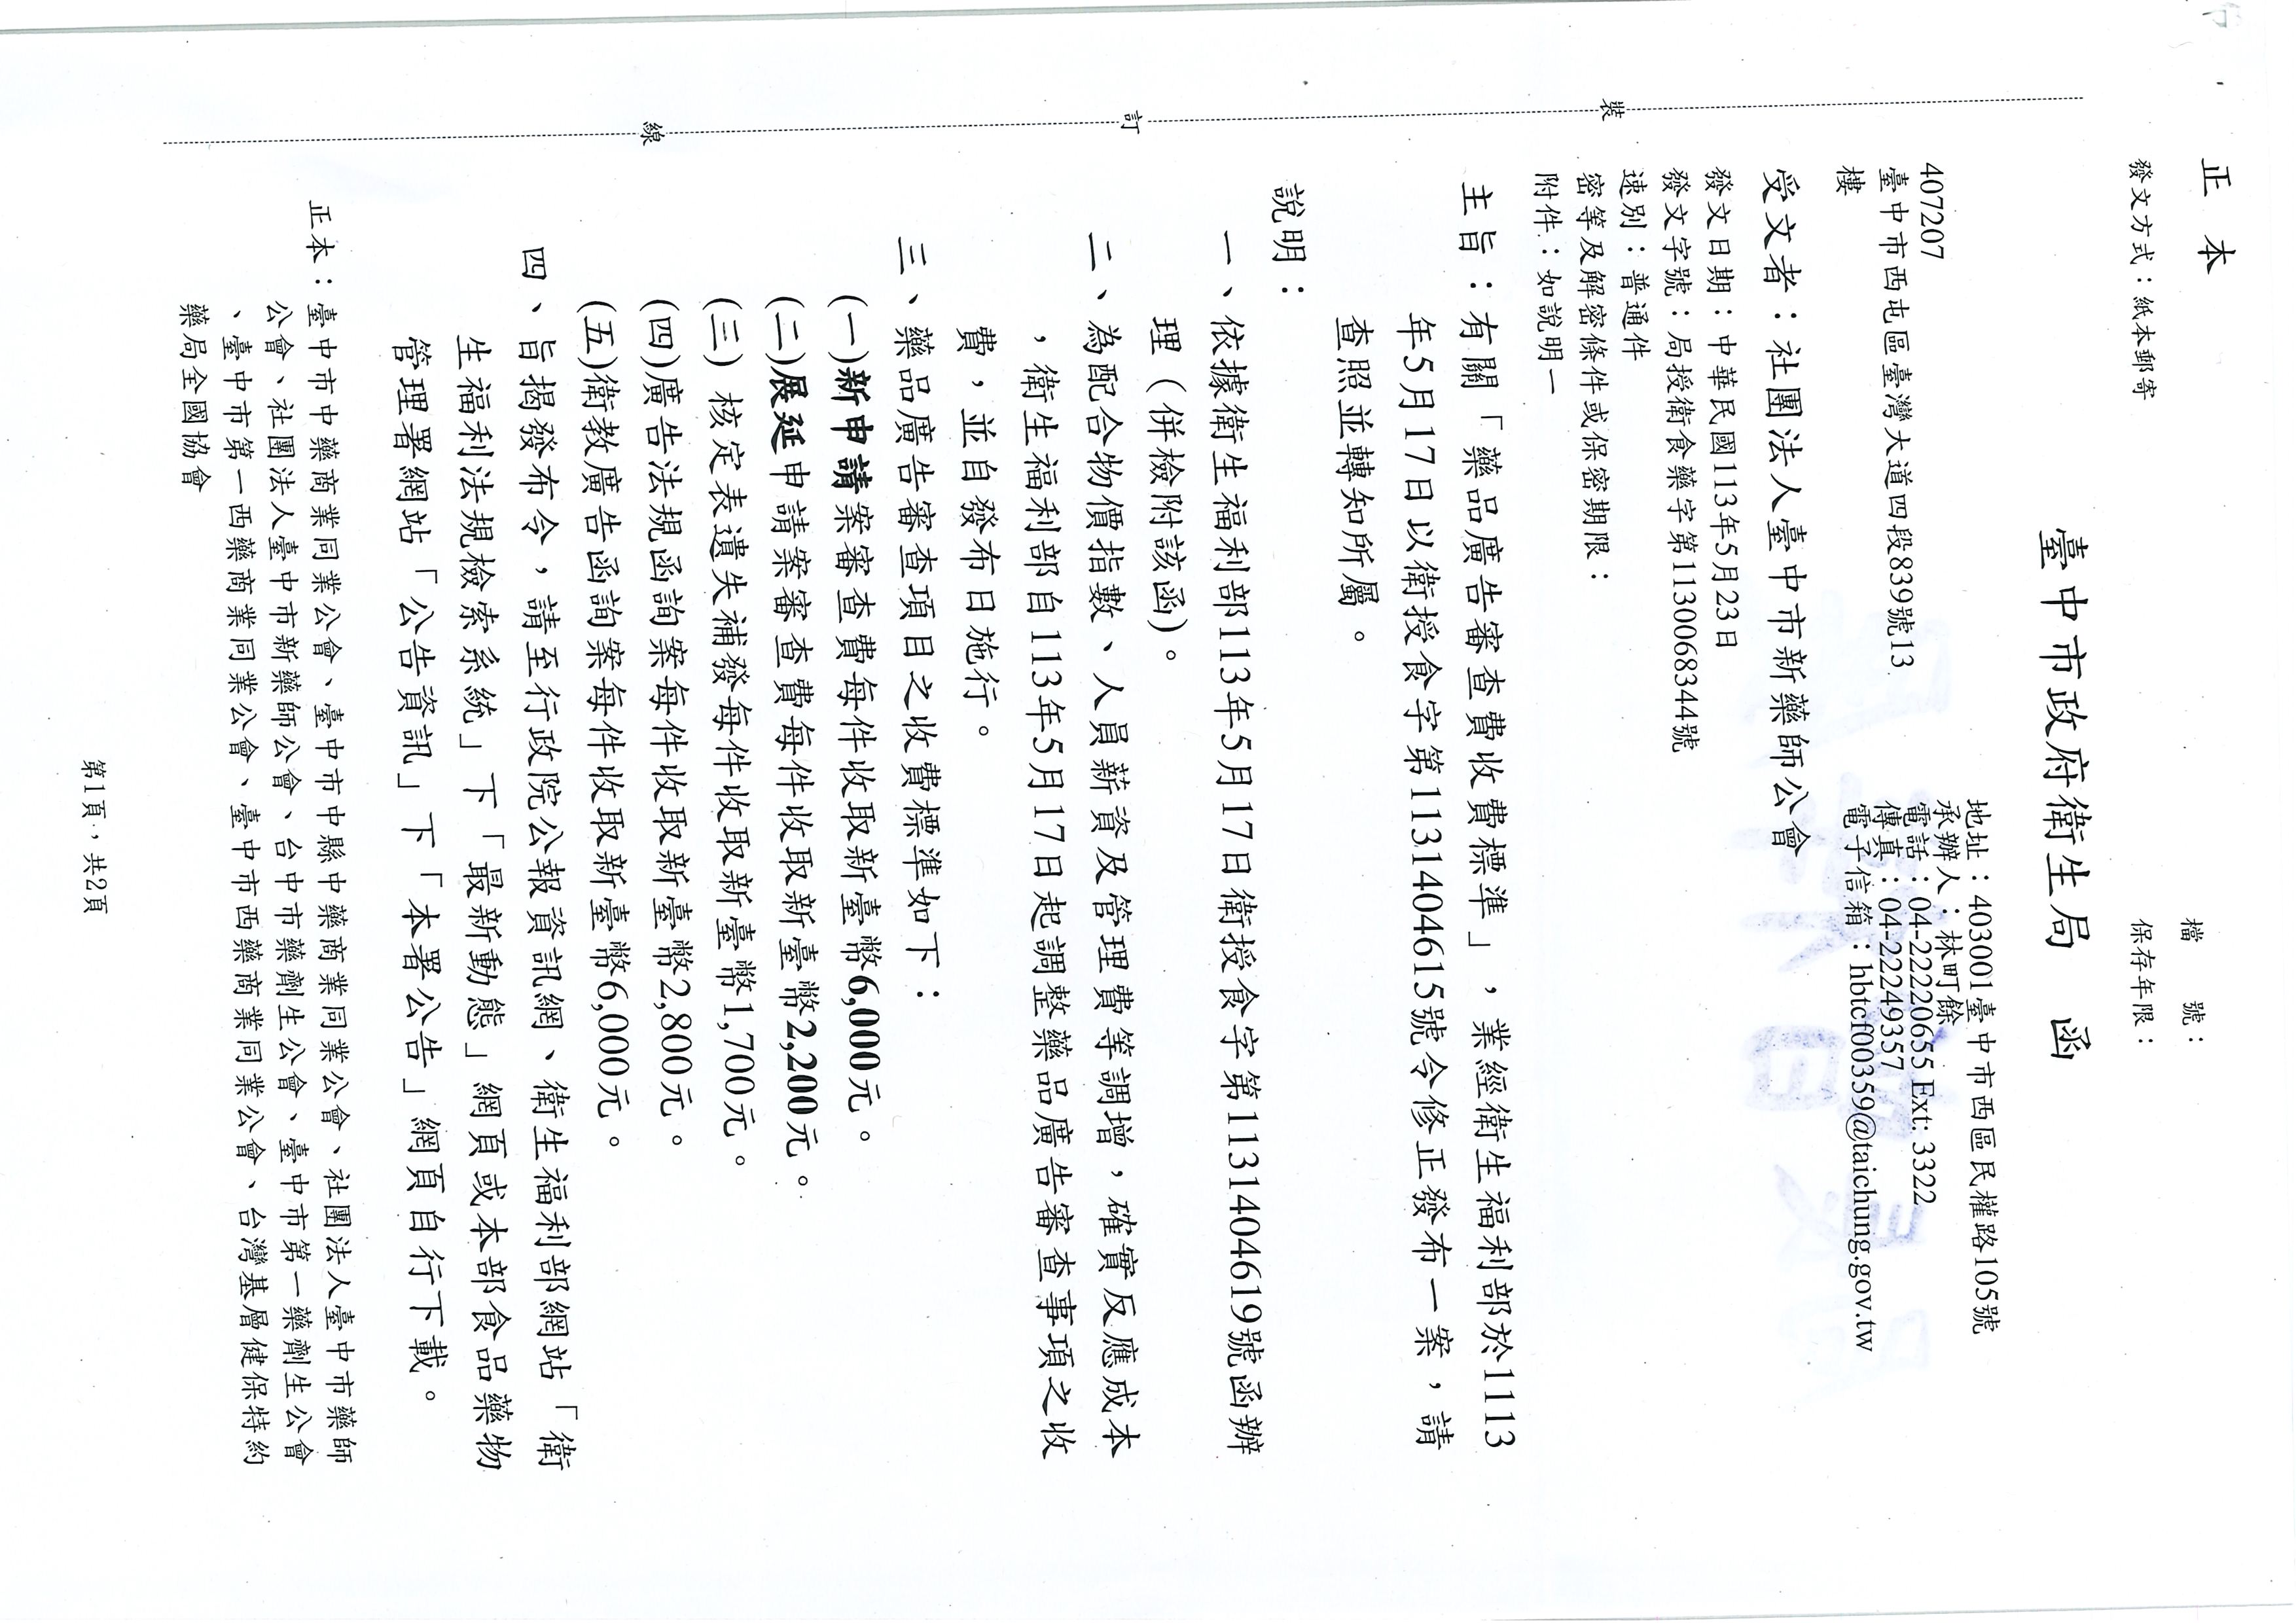 正本
檔　　號：
保存年限：
發文方式：紙本郵寄
臺中市政府衛生局　函
地址：403001臺中市西區民權路105號
承辦人：林町餘
電話：04-22220655 Ext: 3322
傳真：04-22249357
電子信箱：hbtcf00359@taichung.gov.tw
407207
臺中市西屯區臺灣大道四段839號13
樓
受文者：社團法人臺中市新藥師公會
發文日期：中華民國113年5月23日
發文字號：局授衛食藥字第1130068344號
速別：普通件
密等及解密條件或保密期限：
附件：如說明一
主旨：有關「藥品廣告審查費收費標準」，業經衛生福利部於1113
年5月17日以衛授食字第1131404615號令修正發布一案，請
查照並轉知所屬。
說明：
一、依據衛生福利部113年5月17日衛授食字第1131404619號函辦
理（併檢附該函）。
二、為配合物價指數、人員薪資及管理費等調增，確實反應成本
，衛生福利部自113年5月17日起調整藥品廣告審查事項之收
費，並自發布日施行。
三、藥品廣告審查項目之收費標準如下：
(一)新申請案審查費每件收取新臺幣6,000元。
(二)展延申請案審查費每件收取新臺幣2,200元。
(三) 核定表遺失補發每件收取新臺幣1,700元。
(四)廣告法規函詢案每件收取新臺幣2,800元。
(五)衛教廣告函詢案每件收取新臺幣6,000元。
四、旨揭發布令，請至行政院公報資訊網、衛生福利部網站「衛
生福利法規檢索系統」下「最新動態」網頁或本部食品藥物
管理署網站「公告資訊」下「本署公告」網頁自行下載。
正本：臺中市中藥商業同業公會、臺中市中縣中藥商業同業公會、社團法人臺中市藥師
公會、社團法人臺中市新藥師公會、台中市藥劑生公會、臺中市第一藥劑生公會
、臺中市第一西藥商業同業公會、臺中市西藥商業同業公會、台灣基層健保特約
藥局全國協會
裝
訂
線
第1頁，共2頁